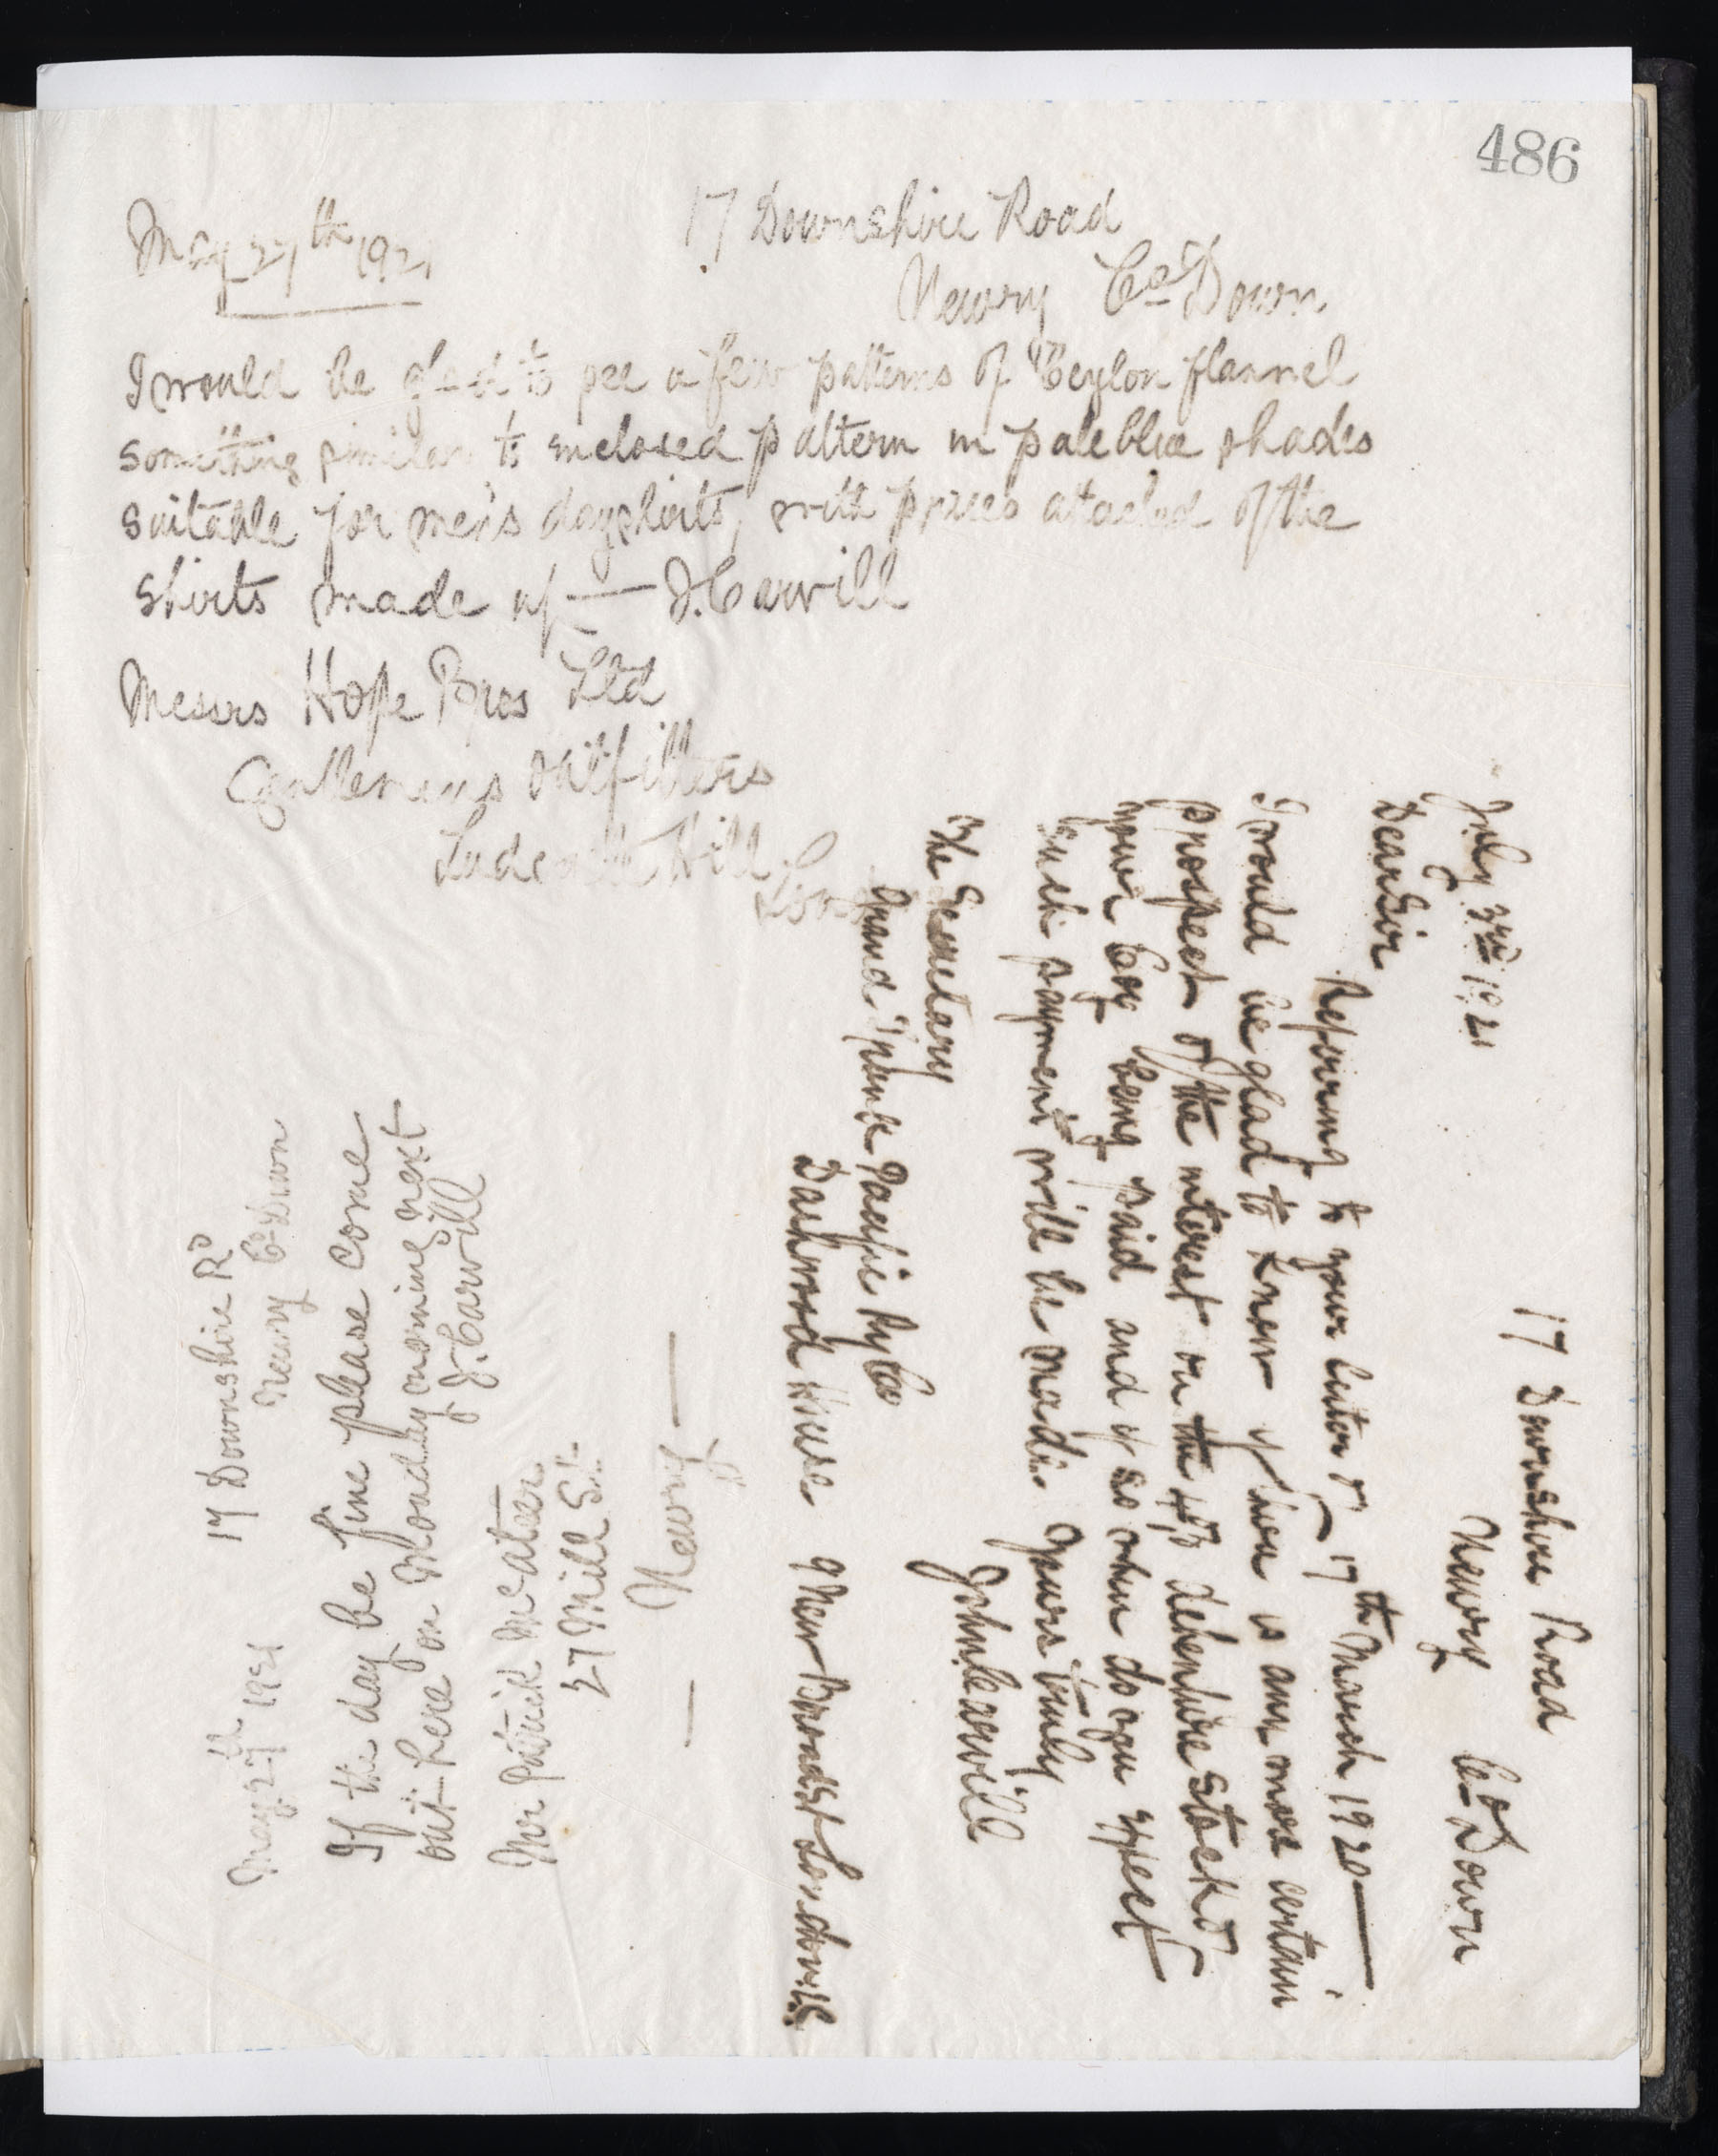 486
May 27th 1921
17 Downshire Road
Newry Co Down.
I would be glad to see a few patterns of Ceylon flannel
something similar to enclosed pattern in pale blue shades
suitable for men's dayshirts, with prices attached of the
shirts made up — J. Carvill
Messrs Hope Bros Ltd
Gentlemens Outfitters
Ludgate Hill
July 3rd 1921
17 Downshire Road
Newry Co Down
Dear Sir
Refering to your letter of 17th March 1920 —
I would be glad to know if there is any more certain
prospect of the interest on the 4% debenture stock of
your Coy being paid and if so when do you expect
such payment will be made. Yours truly
John Carvill
The Secretary
Grand Trunk Pacific Ry Co
Dashwood House 9 New Broad St London E.C.
May 27th 1921
17 Downshire Rd
Newry Co Down
If the day be fine please come
out here on Monday morning next
J. Carvill
Mr Patrick McAteer
27 Mill St.
— Newry —